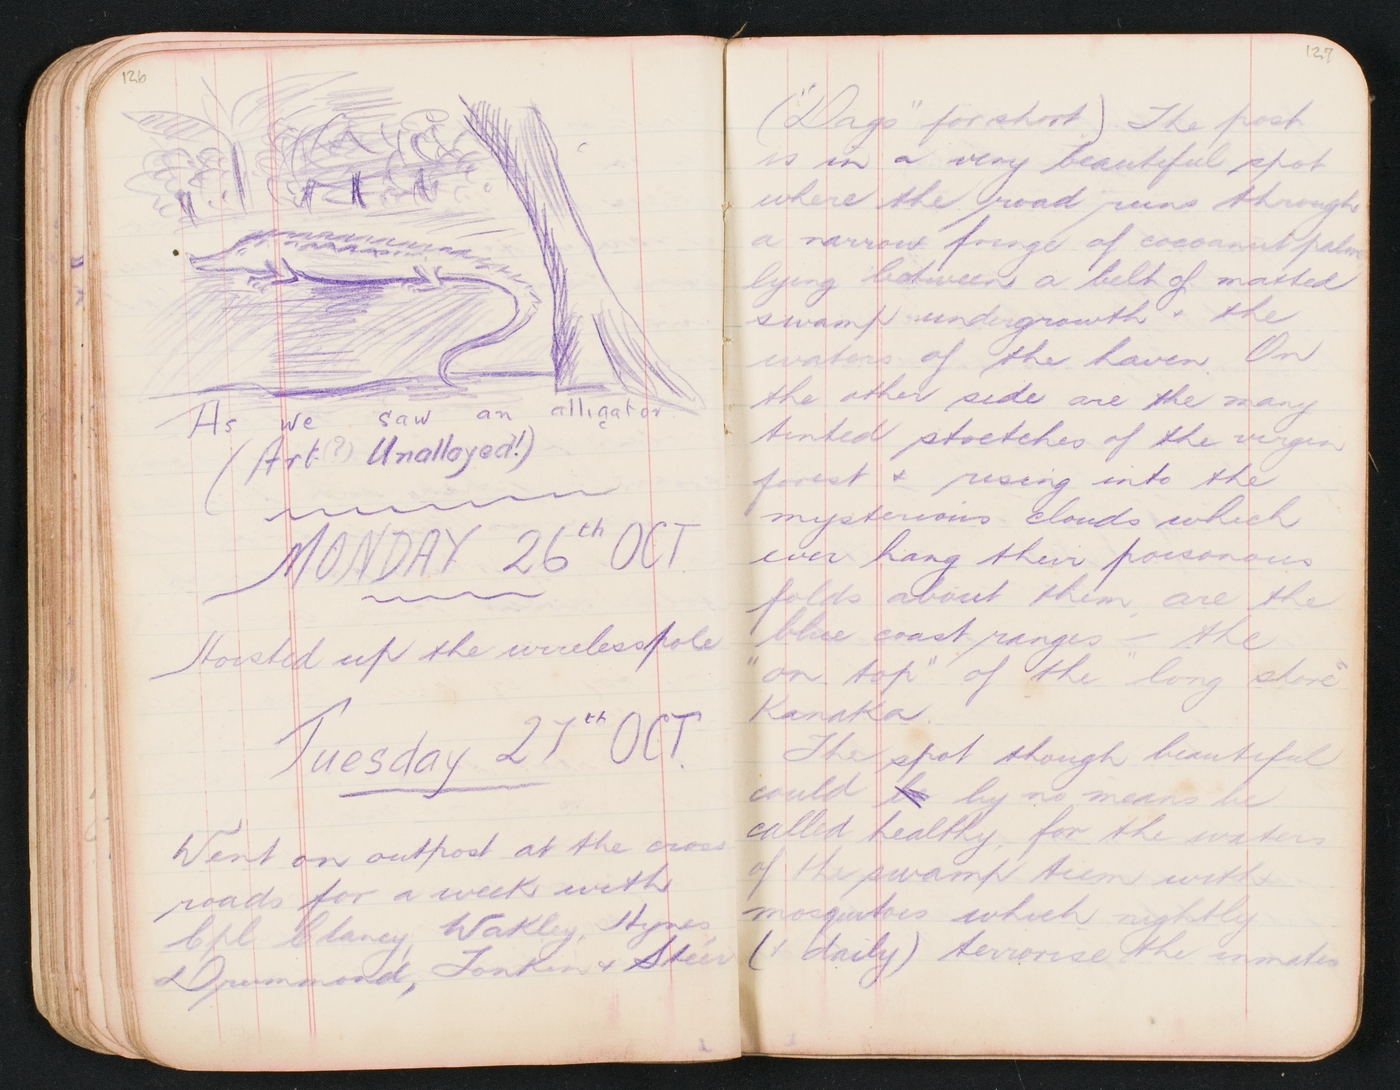 126
As we saw an alligator
(Art (?) Unalloyed!)
MONDAY 26th OCT
Hoisted up the wireless pole
Tuesday 27th OCT.
Went on outpost at the cross
roads for a week with
Cpl Clancy, Wakley, Hynes
& Drummond, Tonkin & Steer
127
("Dags" for short). The post
is in a very beautiful spot
where the road runs through
a narrow fringe of cocoanut palm
lying between a belt of matted
swamp undergrowth & the
waters of the haven. On
the other side are the many
tinted stretches of the virgin
forest & rising into the
mysterious clouds which
ever hang their poisonous
folds about them, are the
blue coast ranges – the
"on top" of the "long shore"
Kanaka.
The spot though beautiful
could by no means be
called healthy, for the waters
of the swamp teem with
mosquitoes which nightly
(& daily) terrorise the inmates